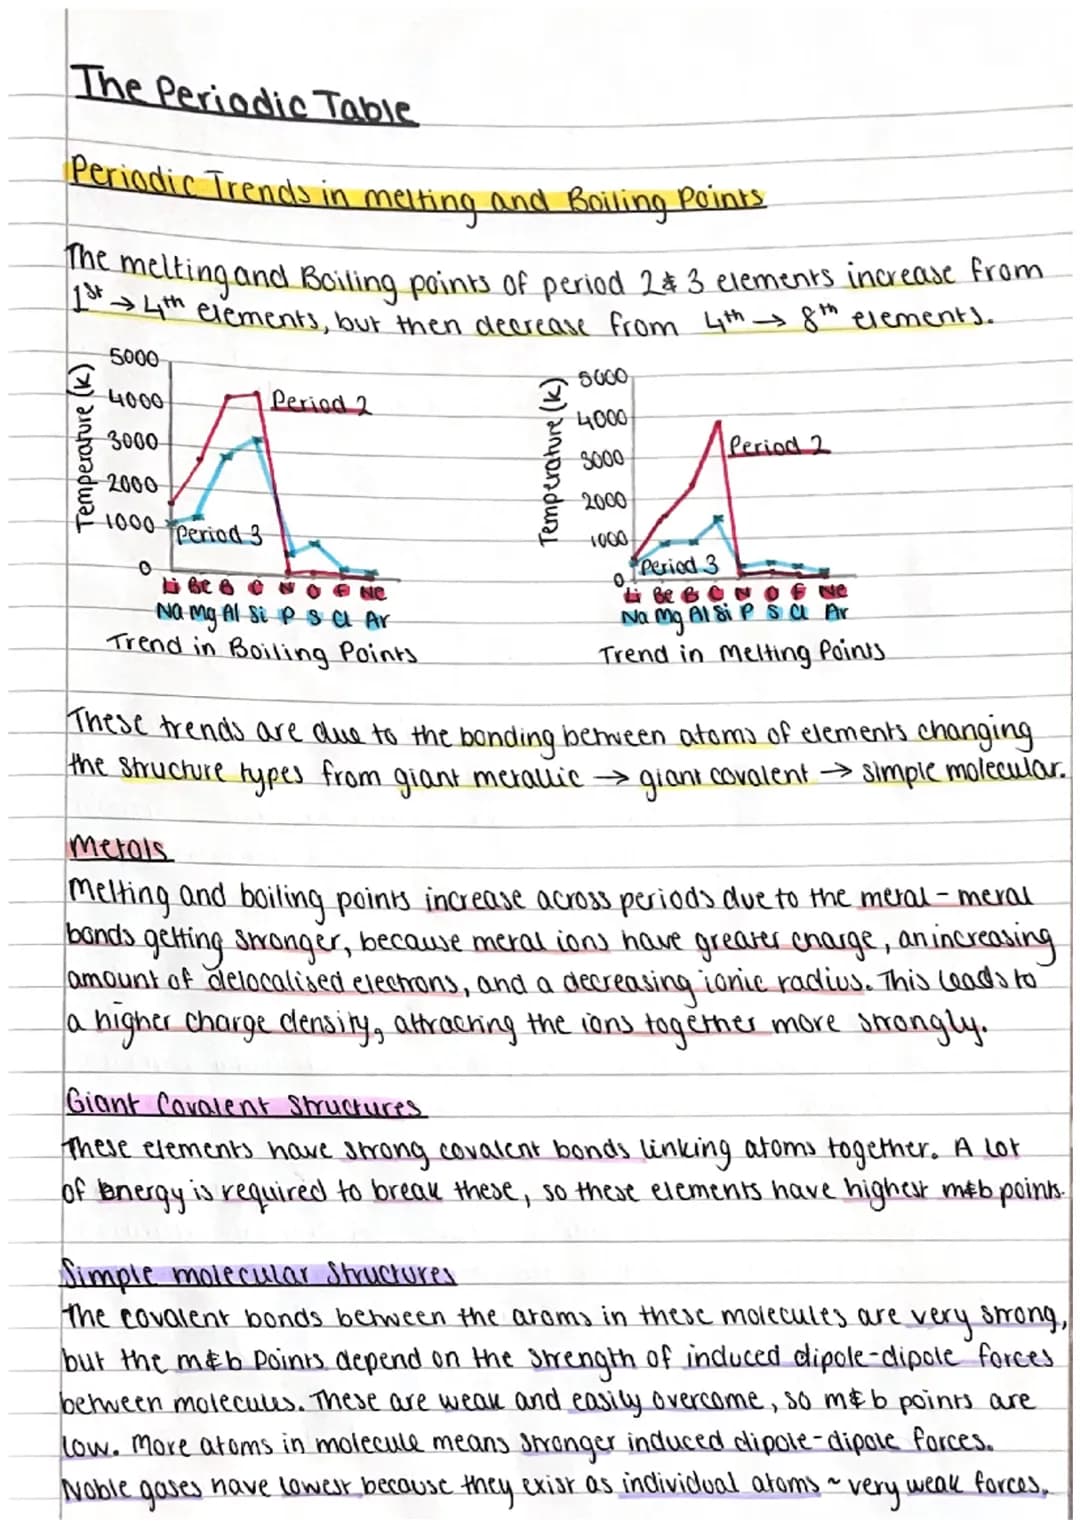 The Periodic Table
Periodic Trends in melting and Boiling Points
The melting and Boiling points of period 2 & 3 elements increase from
1st → 4th elements, but then decrease from 4th → 8th elements.
5000
4000
3000
2000
1000
0
Temperature (K)
Period 2
Period 3
Li Be B C N O F Ne
Na Mg Al Si P S Cl Ar
Trend in Boiling Points
5000
4000
3000
2000
1000
0
Temperature (K)
Period 2
Period 3
Li Be B C N O F Ne
Na Mg Al Si P S Cl Ar
Trend in Melting Points
These trends are due to the bonding between atoms of elements changing
the structure types from giant metallic → giant covalent → simple molecular.
Metals
Melting and boiling points increase across periods due to the metal-metal
bonds getting stronger, because metal ions have greater charge, an increasing
amount of delocalised electrons, and a decreasing ionic radius. This leads to
a higher charge density, attracting the ions together more strongly.
Giant Covalent Structures
These elements have strong covalent bonds linking atoms together. A lot
of energy is required to break these, so these elements have highest m&b points.
Simple molecular Structures
The covalent bonds between the atoms in these molecules are very strong,
but the m&b Points depend on the strength of induced dipole-dipole forces
between molecules. These are weak and easily overcome, so m&b points are
low. More atoms in molecule means stronger induced dipole-dipole forces.
Noble gases have lowest because they exist as individual atoms ~ very weak forces.